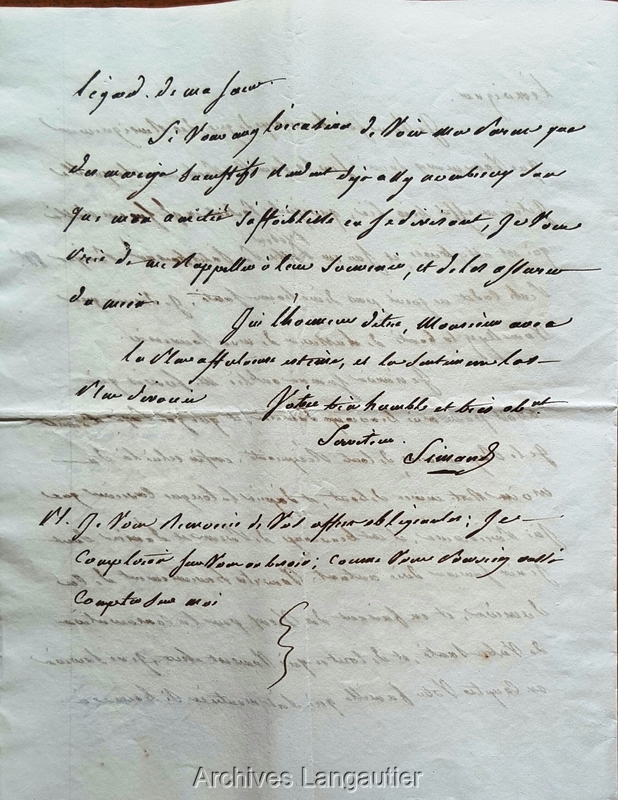 l'égard de ma sœur.
Si vous avez l'occasion de voir mes
des mariages
que mon amitié s'affoiblisse en se divisant, je vous
prie de me rappeller à leur souvenir, et de les assurer
du mien.
J'ai l'honneur d'être, Monsieur avec
la plus affectueuse estime, et les sentimens les
plus dévoués
Votre très humble et très obt.
Serviteur.
Simand
PS. Je vous remercie de vos offres obligeantes; je
compterois sur vous au besoin; comme vous pouvez aussi
compter sur moi
Archives Langautier